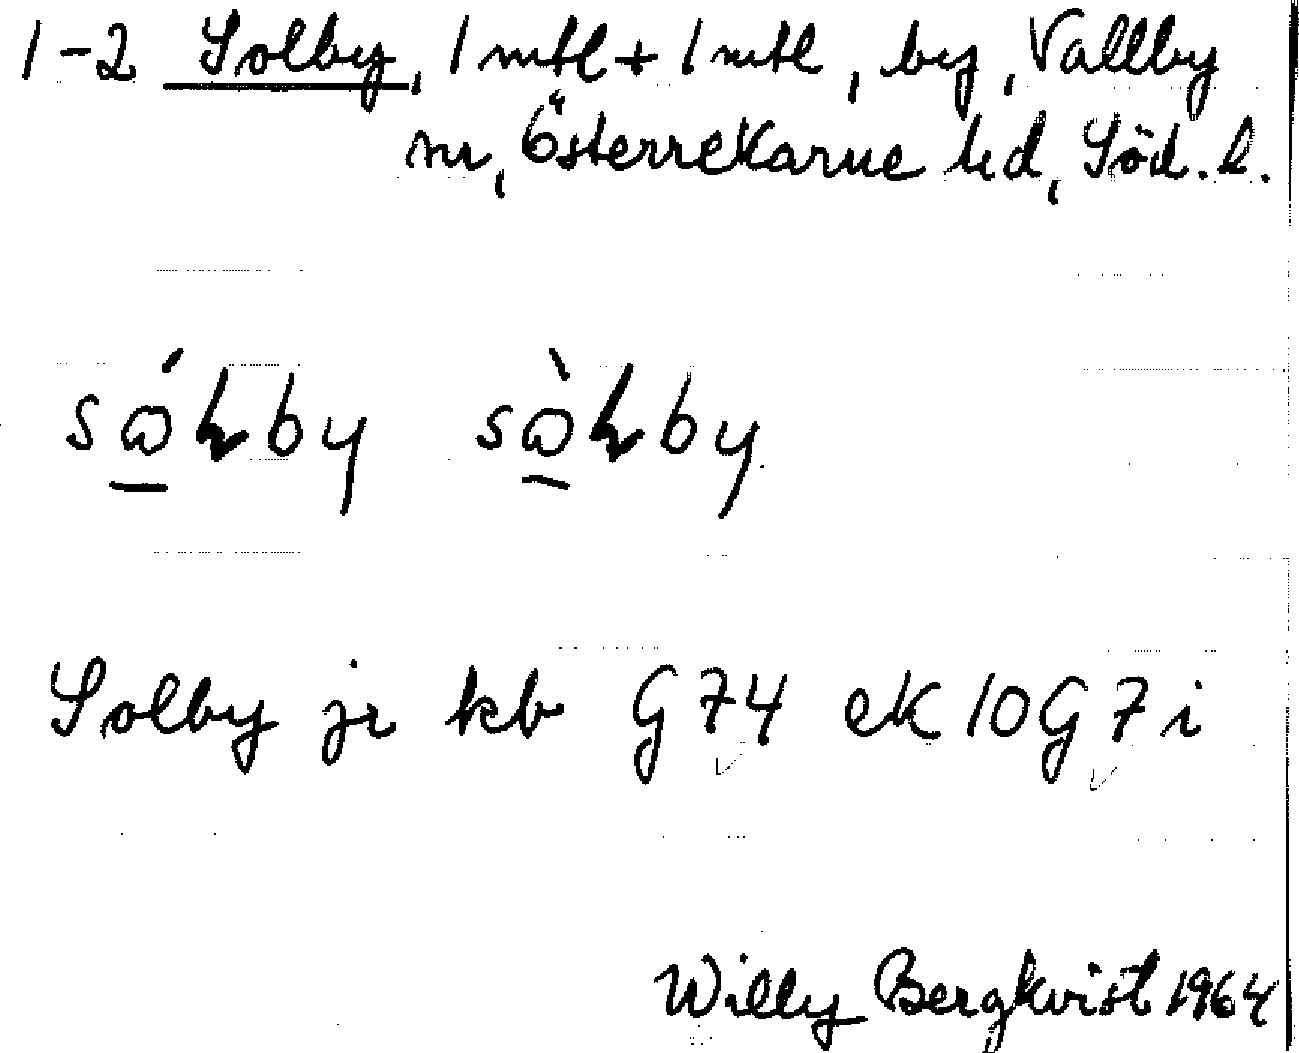 1-2 Solby, 1 mtl + 1 mtl, by, Vallby
sn, Österrekarne hd, Söd. l.
Solby jr kb G 74 ek 10G 7i
Willy Bergkvist 1964